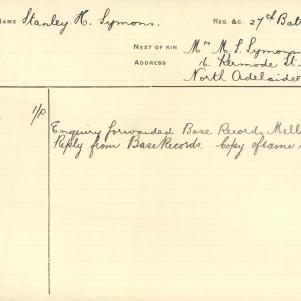 NAME Stanley H. Symons. REG. &C. 27th Bat
NEXT OF KIN Mrs M. S. Symons
ADDRESS 16 Kermode St.
North Adelaide
Enquiry forwarded Base Records Melb
Reply from Base Records. Copy of same